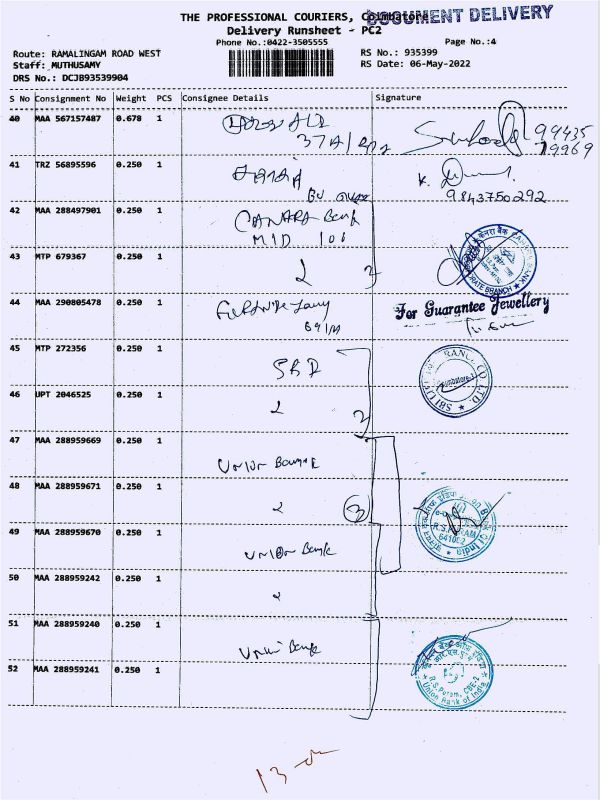 THE PROFESSIONAL COURIERS, Coimbatore
DOCUMENT DELIVERY
Delivery Runsheet - PC2
Phone No.:0422-3505555
Page No.:4
Route: RAMALINGAM ROAD WEST
RS No.: 935399
Staff: MUTHUSAMY
RS Date: 06-May-2022
DRS No.: DCJB93539904
S No Consignment No Weight PCS Consignee Details Signature
40 MAA 567157487 0.678 1
99435
79969
41 TRZ 56895596 0.250 1
9843750292
42 MAA 288497901 0.250 1 CANARA Bank
MID 101
43 MTP 679367 0.250 1
2 2
44 MAA 290805478 0.250 1
For Guarantee Jewellery
45 MTP 272356 0.250 1
46 UPT 2046525 0.250 1
2 2
47 MAA 288959669 0.250 1
Union Bank
48 MAA 288959671 0.250 1
2 3
R.S.PURAM
641002
49 MAA 288959670 0.250 1
Union Bank
50 MAA 288959242 0.250 1
2
51 MAA 288959240 0.250 1
Union Bank
52 MAA 288959241 0.250 1
R.S.Puram, CBE-2
Union Bank of India